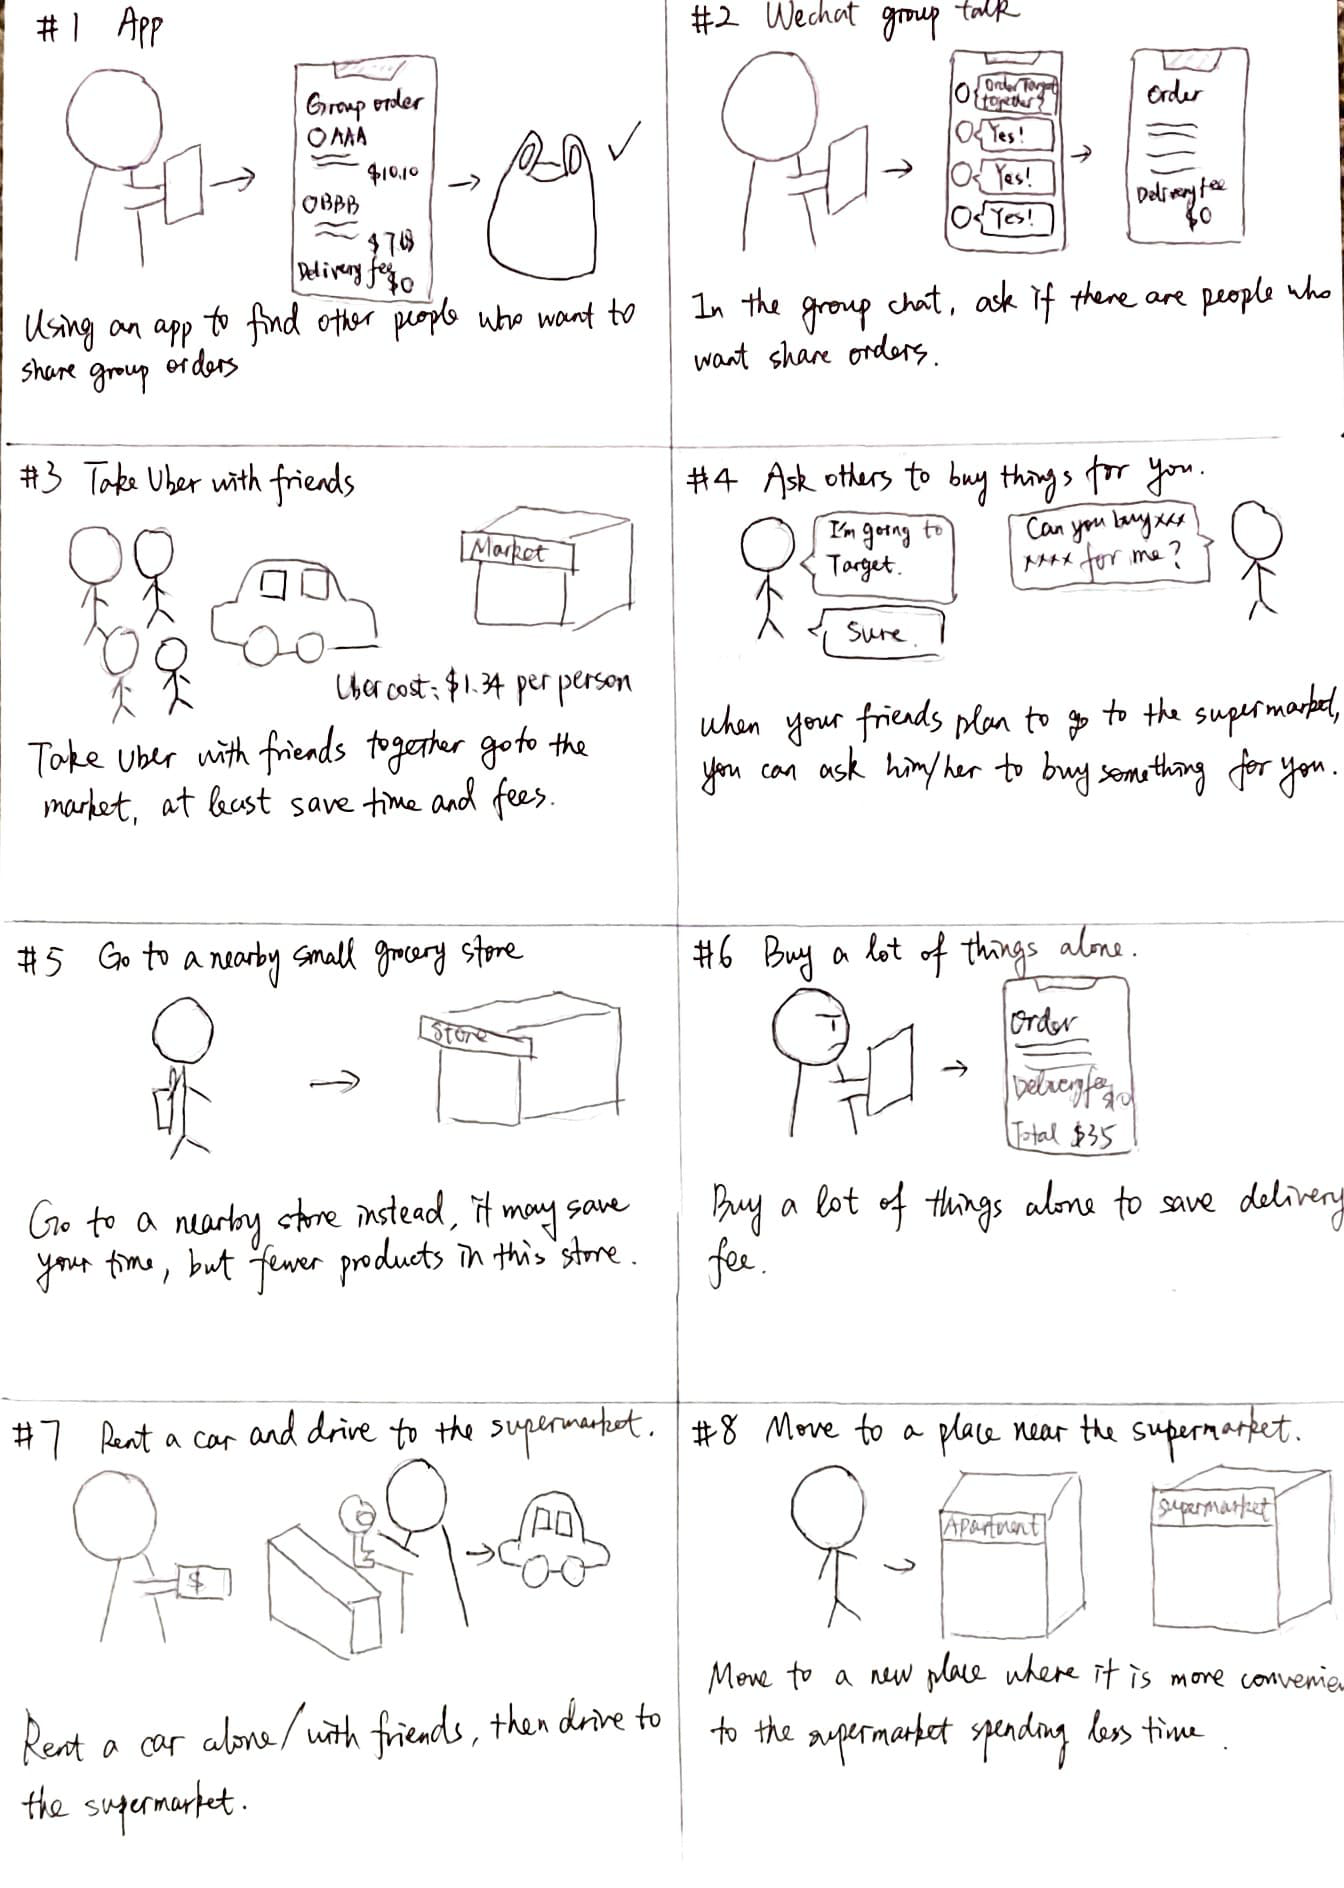 #1 App
Group order
AAA
$10.10
BBB
Delivery fee
$0
Using an app to find other people who want to
share group orders
#2 Wechat group talk
Order Target
together?
Yes!
Yes!
Yes!
Order
Delivery fee
$0
In the group chat, ask if there are people who
want share orders.
#3 Take Uber with friends
Market
Uber cost: $1.34 per person
Take Uber with friends together go to the
market, at least save time and fees.
#4 Ask others to buy things for you.
I'm going to
Target.
Can you buy xxx
xxxx for me?
Sure.
When your friends plan to go to the supermarket,
you can ask him/her to buy something for you.
#5 Go to a nearby small grocery store
Store
Go to a nearby store instead, it may save
your time, but fewer products in this store.
#6 Buy a lot of things alone.
Order
Delivery fee
$0
Total $35
Buy a lot of things alone to save delivery
fee.
#7 Rent a car and drive to the supermarket.
$
Rent a car alone/with friends, then drive to
the supermarket.
#8 Move to a place near the supermarket.
Apartment
Supermarket
Move to a new place where it is more convenie
to the supermarket spending less time.